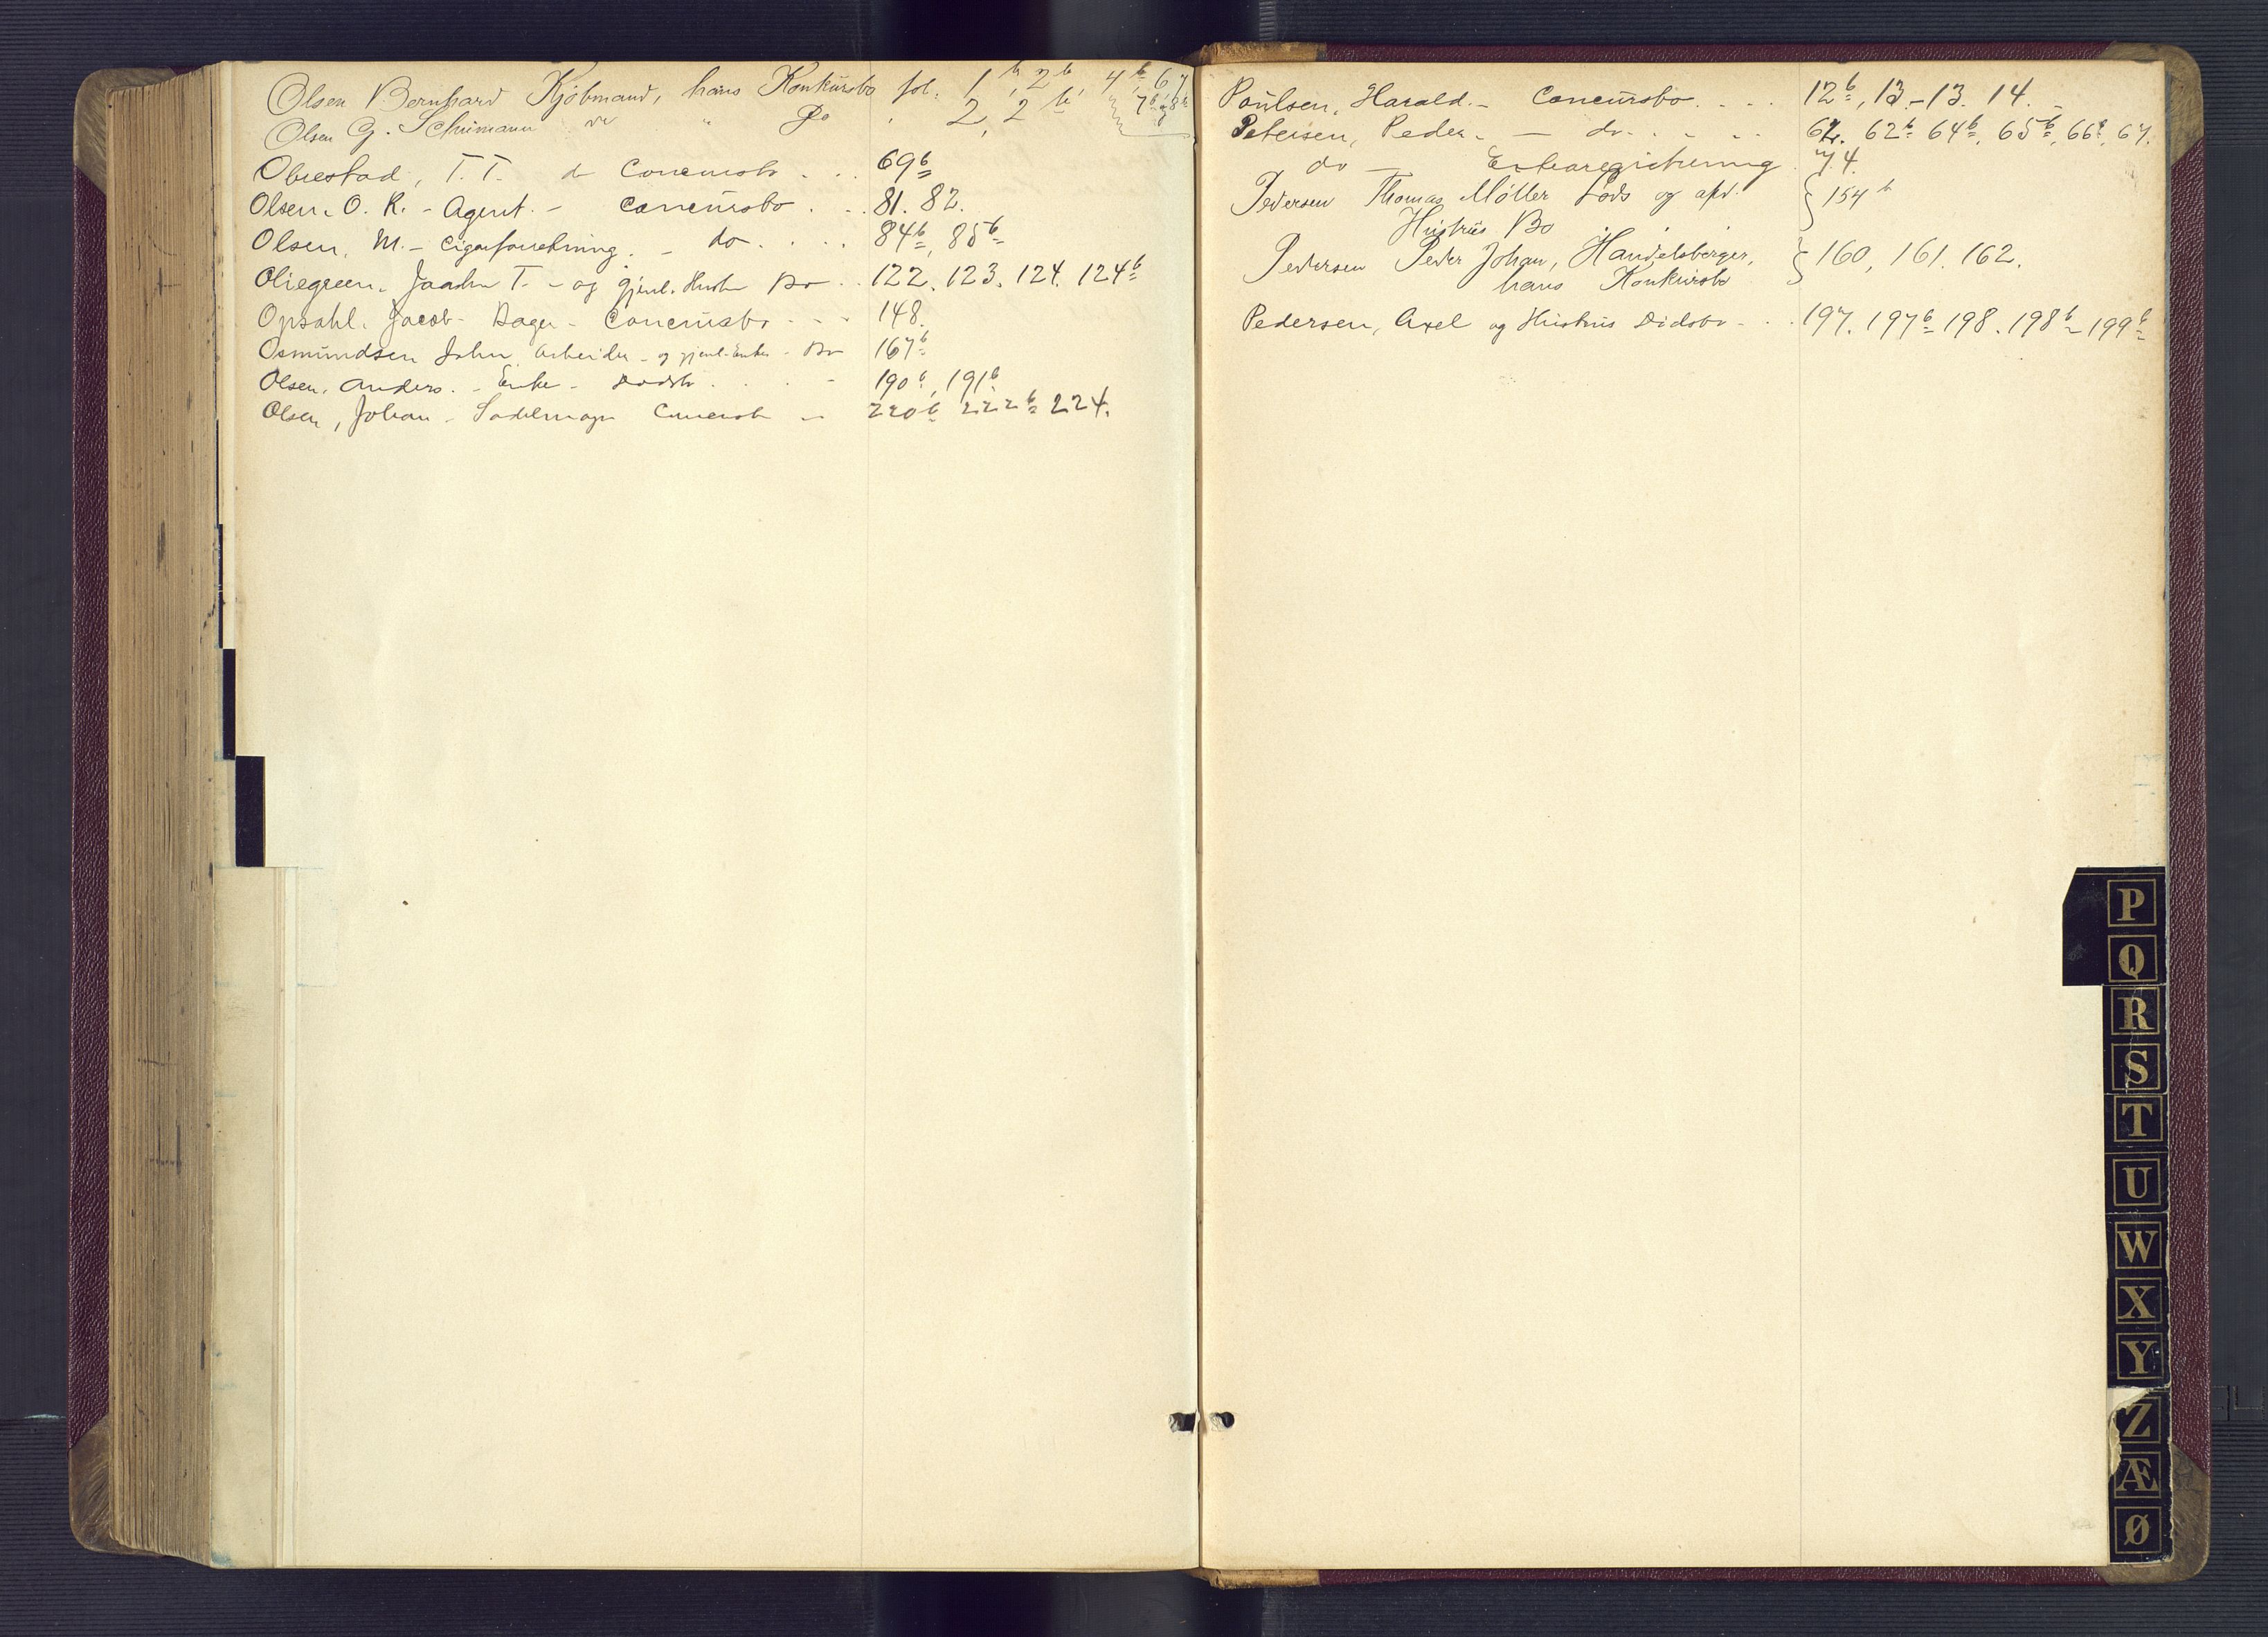 Olsen Bernhard Kjöbmand, hans Konkursbo fol. 1b, 2b, 4b, 6, 7
Olsen G. Schumann do " Do . 2, 2b 7b, 8b
Obrestad, T. T. Concursbo . . . 69b
Olsen, O. R. - Agent. - Concursbo . . . 81. 82.
Olsen, M. - Cigarforretning. - do . . . . 84b, 85b
Oliegreen, T. - og gjenl. Bo . . 122. 123. 124. 124b
Opsahl. Jacob - Bager - Concursbo - - - 148.
Osmundsen John, Arbeider - og gjenl. Enke - Bo 167b
Olsen, Anders. - Enke - Dødsbo . . . - 190b, 191b
Olsen, Johan - Sadelmager Concursbo - 220b 222b 224.
Poulsen, Harald. - Concursbo. . . . 12b, 13. - 13. 14.
Petersen, Peder. - — do. . . . . 62. 62b 64b, 65b, 66b, 67.
do — 74.
Pedersen Thomas Möller Lods og afd. } 154b
Hustrus Bo
Pedersen Peder Johan, Handelsberger, } 160, 161. 162.
hans Konkursbo
Pedersen, Axel og Hustrus Dødsbo - . . 197. 197b 198. 198b - 199b
P
Q
R
S
T
U
W
X
Y
Z
Æ
Ø